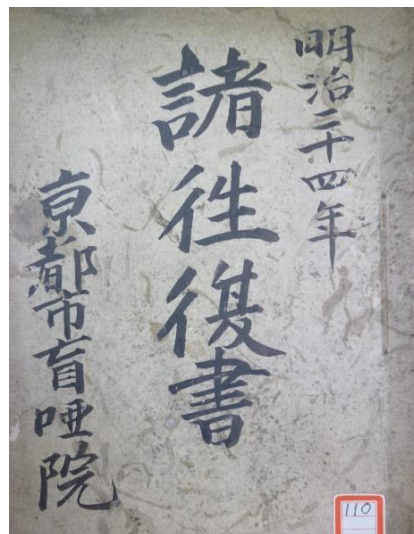 明治三十四年
諸徃復書
京都市盲唖院
110